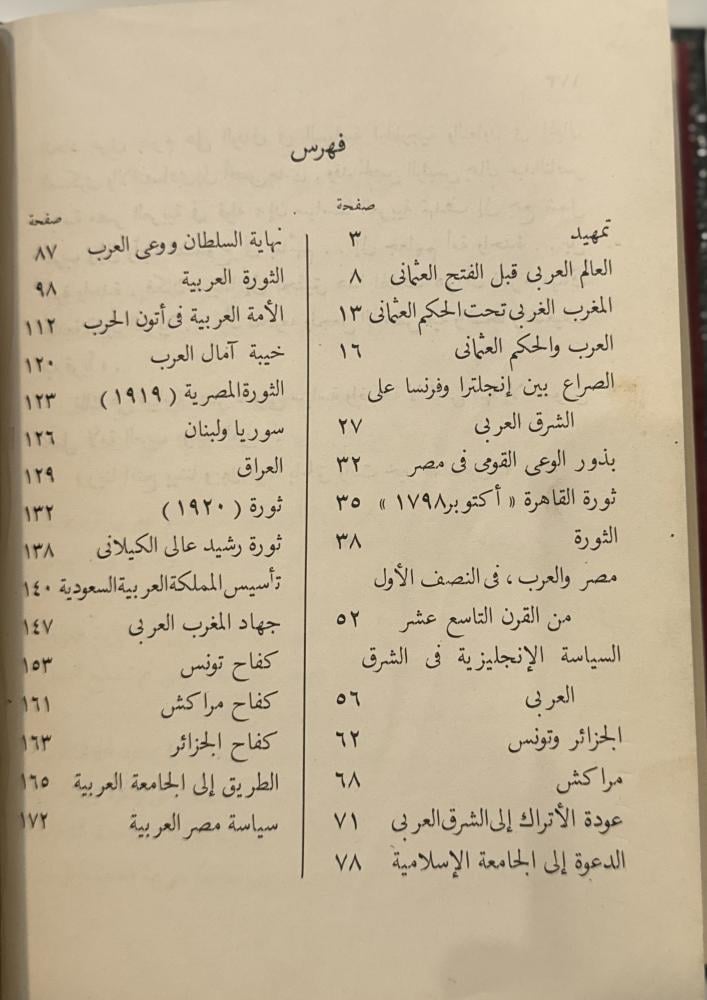 فهرس
صفحة
تمهيد ٣
العالم العربى قبل الفتح العثمانى ٨
المغرب الغربى تحت الحكم العثمانى ١٣
العرب والحكم العثمانى ١٦
الصراع بين إنجلترا وفرنسا على
الشرق العربى ٢٧
بذور الوعى القومى فى مصر ٣٢
ثورة القاهرة « أكتوبر ١٧٩٨ » ٣٥
الثورة ٣٨
مصر والعرب ، فى النصف الأول
من القرن التاسع عشر ٥٢
السياسة الإنجليزية فى الشرق
العربى ٥٦
الجزائر وتونس ٦٢
مراكش ٦٨
عودة الأتراك إلى الشرق العربى ٧١
الدعوة إلى الجامعة الإسلامية ٧٨
صفحة
نهاية السلطان ووعى العرب ٨٧
الثورة العربية ٩٨
الأمة العربية فى أتون الحرب ١١٢
خيبة آمال العرب ١٢٠
الثورة المصرية ( ١٩١٩ ) ١٢٣
سوريا ولبنان ١٢٦
العراق ١٢٩
ثورة ( ١٩٢٠ ) ١٣٢
ثورة رشيد عالى الكيلانى ١٣٨
تأسيس المملكة العربية السعودية ١٤٠
جهاد المغرب العربى ١٤٧
كفاح تونس ١٥٣
كفاح مراكش ١٦١
كفاح الجزائر ١٦٣
الطريق إلى الجامعة العربية ١٦٥
سياسة مصر العربية ١٧٢